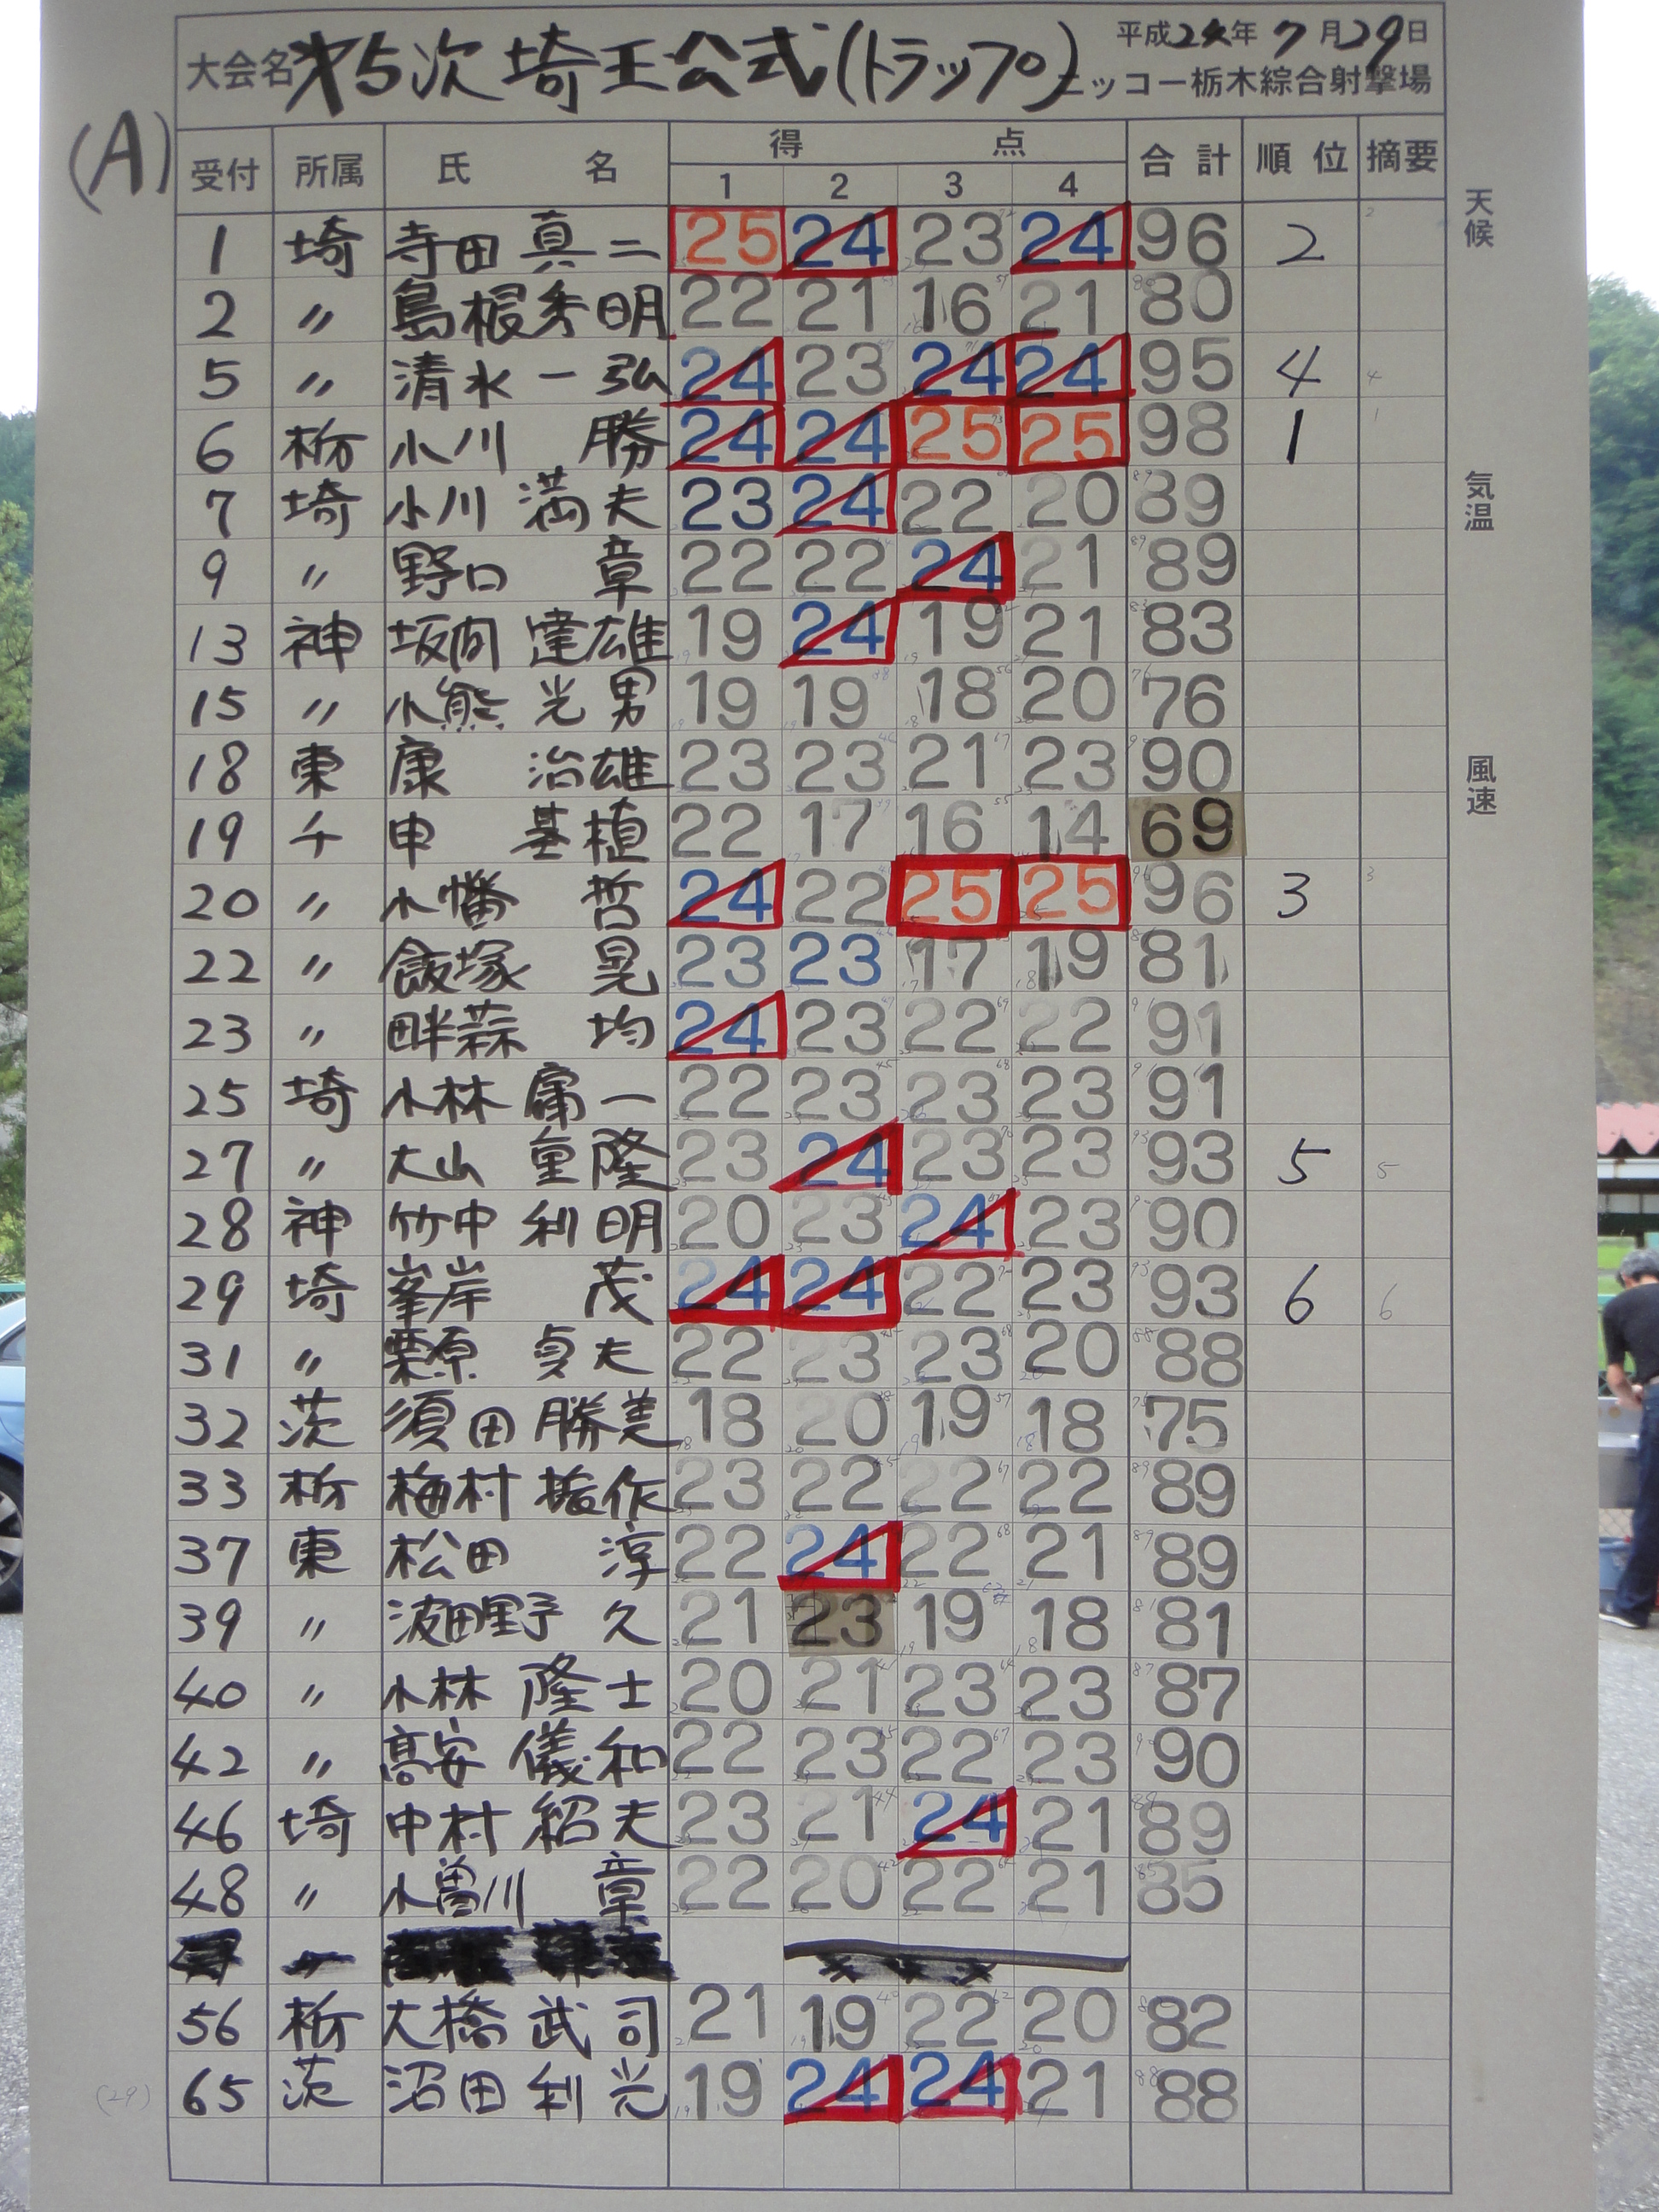 大会名 第5次埼玉公式(トラップ) 平成24年7月29日
ニッコー栃木綜合射撃場
(A)
受付 所属 氏名 得点 合計 順位 摘要
1 2 3 4
天候
気温
風速
1 埼 寺田真二 25 24 23 24 96 2 2
2 〃 島根秀明 22 21 16 21 80
5 〃 清水一弘 24 23 24 24 95 4 4
6 栃 小川勝 24 24 25 25 98 1 1
7 埼 小川満夫 23 24 22 20 89
9 〃 野口章 22 22 24 21 89
13 神 坂間達雄 19 24 19 21 83
15 〃 小熊光男 19 19 18 20 76
18 東 康治雄 23 23 21 23 90
19 千 申基植 22 17 16 14 69
20 〃 小幡哲 24 22 25 25 96 3 3
22 〃 飯塚晃 23 23 17 19 81
23 〃 畔蒜均 24 23 22 22 91
25 埼 小林一 22 23 23 23 91
27 〃 大山重隆 23 24 23 23 93 5 5
28 神 竹中利明 20 23 24 23 90
29 埼 峯岸茂 24 24 22 23 93 6 6
31 〃 栗原貞夫 22 23 23 20 88
32 茨 須田勝美 18 20 19 18 75
33 栃 梅村作 23 22 22 22 89
37 東 松田淳 22 24 22 21 89
39 〃 波田野久 21 23 19 18 81
40 〃 小林隆士 20 21 23 23 87
42 〃 髙安儀和 22 23 22 23 90
46 埼 中村紹夫 23 21 24 21 89
48 〃 小曽川章 22 20 22 21 85
56 栃 大橋武司 21 19 22 20 82
(29) 65 茨 沼田利光 19 24 24 21 88